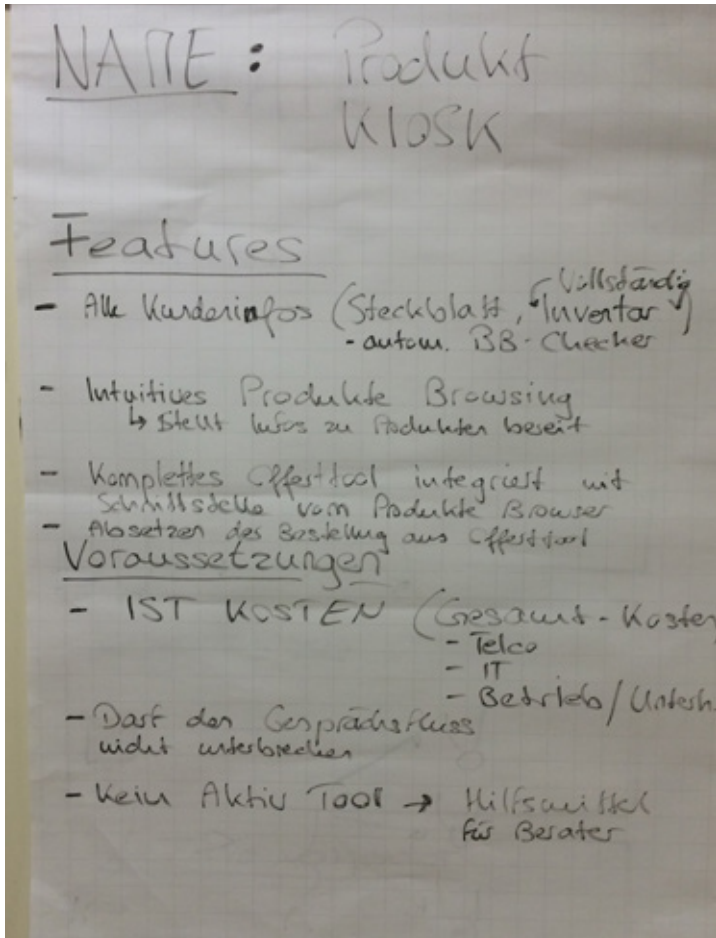 NAME: Produkt
KIOSK
Features
- Alle Kundeninfos (Steckblatt, Inventar)
Vollständig
- autom. BB-Checker
- Intuitives Produkte Browsing
↳ Stellt Infos zu Produkten bereit
- Komplettes Offerttool integriert mit
Schnittstelle vom Produkte Browser
- Absetzen der Bestellung aus Offerttool
Voraussetzungen
- IST KOSTEN (Gesamt-Kosten
- Telco
- IT
- Betrieb/Unterh.
- Darf den Gesprächsfluss
nicht unterbrechen
- Kein Aktiv Tool → Hilfsmittel
für Berater